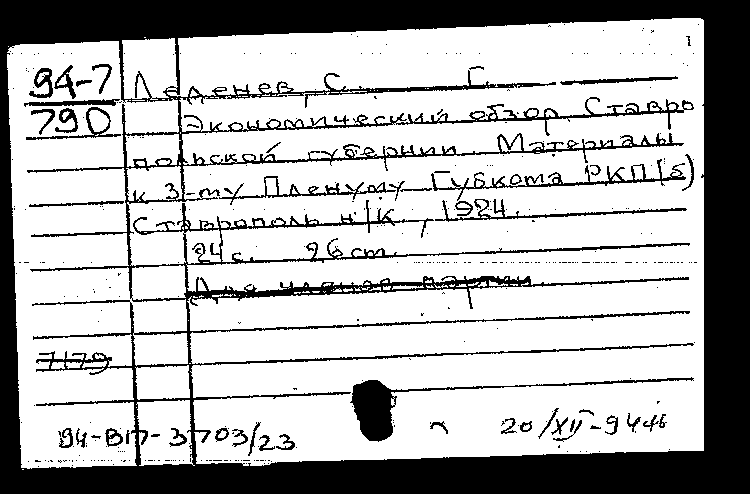 1
94-7 Леденев, С. Г.
790 Экономический обзор Ставро
польской губернии. Материалы
к 3-му Пленуму Губкома РКП(б).
Ставрополь н/К, 1924.
24 с. 26 cm.
Для членов партии
7179
94-ВП-3703/23 20/XII-94